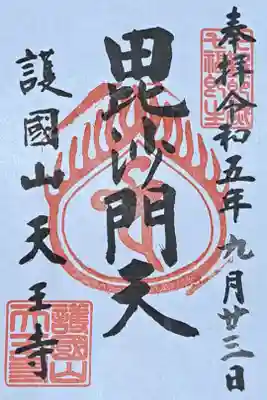 奉拝令和五年九月廿三日
毘沙門天
護國山天王寺
護國山